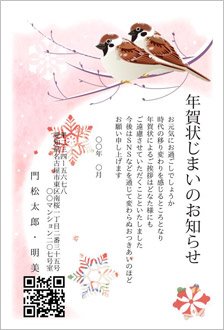 年賀状じまいのお知らせ
お元気にお過ごしでしょうか
時代の移り変わりを感じるところとなり
年賀状によるご挨拶はどなた様にも
ご遠慮させていただくことといたしました
今後はSNSなどを通じて変わらぬおつきあいのほど
お願い申し上げます
〇〇年 〇月
愛知県名古屋市東区南桜一丁目二番三十五号
〇〇マンション二〇七号室
門松太郎・明美